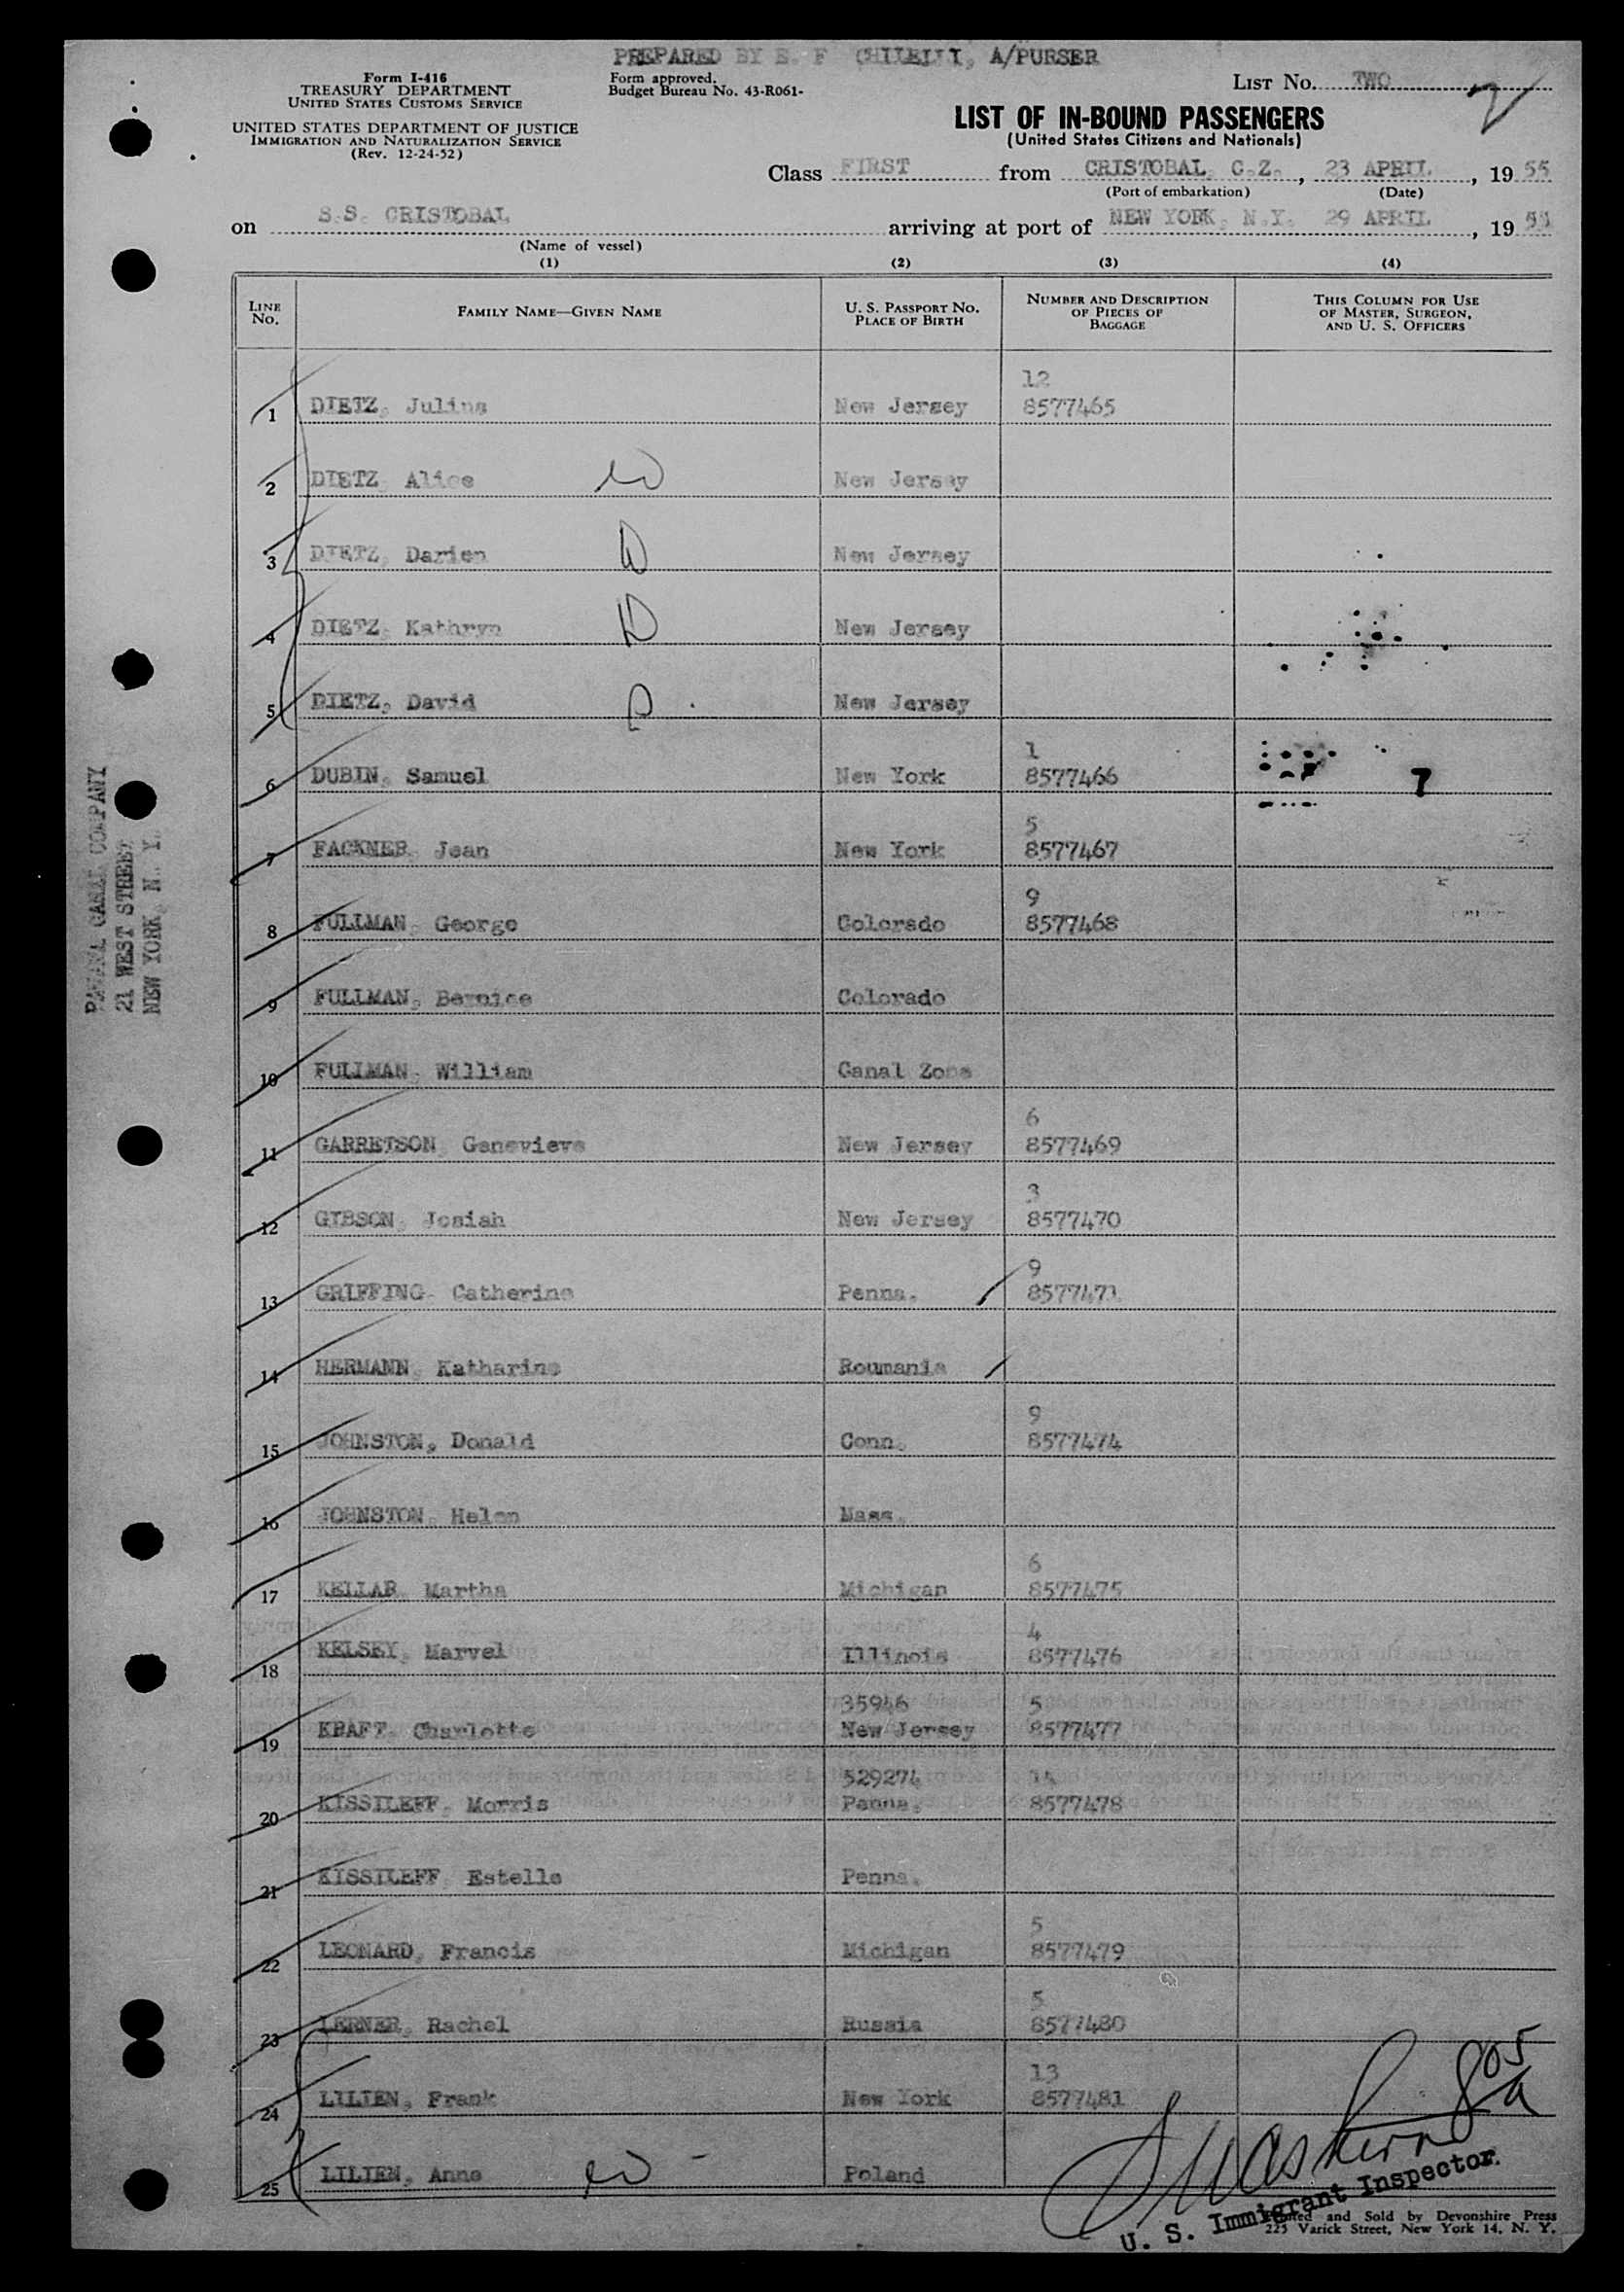 PREPARED BY E. F CHILELLI, A/PURSER
Form I-416
TREASURY DEPARTMENT
UNITED STATES CUSTOMS SERVICE
UNITED STATES DEPARTMENT OF JUSTICE
IMMIGRATION AND NATURALIZATION SERVICE
(Rev. 12-24-52)
Form approved.
Budget Bureau No. 43-R061-
LIST No. TWO 2
LIST OF IN-BOUND PASSENGERS
(United States Citizens and Nationals)
Class FIRST from CRISTOBAL, C.Z., 23 APRIL, 1955
(Port of embarkation) (Date)
on S.S. CRISTOBAL arriving at port of NEW YORK, N.Y. 29 APRIL, 1955
(Name of vessel)
(1) (2) (3) (4)
LINE No. FAMILY NAME—GIVEN NAME U. S. PASSPORT NO. PLACE OF BIRTH NUMBER AND DESCRIPTION OF PIECES OF BAGGAGE THIS COLUMN FOR USE OF MASTER, SURGEON, AND U. S. OFFICERS
12
1 DIETZ, Julius New Jersey 8577465
2 DIETZ, Alice New Jersey
3 DIETZ, Darien New Jersey
4 DIETZ, Kathryn New Jersey
5 DIETZ, David New Jersey
1
6 DUBIN, Samuel New York 8577466
5
7 FACKNER, Jean New York 8577467
9
8 FULLMAN, George Colorado 8577468
9 FULLMAN, Bernice Colorado
10 FULLMAN, William Canal Zone
6
11 GARRETSON, Genevieve New Jersey 8577469
3
12 GIBSON, Josiah New Jersey 8577470
9
13 GRIFFING, Catherine Penna. 8577471
14 HERMANN, Katharine Roumania
9
15 JOHNSTON, Donald Conn. 8577474
16 JOHNSTON, Helen Mass.
6
17 KELLAR, Martha Michigan 8577475
4
18 KELSEY, Marvel Illinois 8577476
35946 5
19 KRAFT, Charlotte New Jersey 8577477
529274 14
20 KISSILEFF, Morris Penna. 8577478
21 KISSILEFF, Estelle Penna.
5
22 LEONARD, Francis Michigan 8577479
5
23 LERNER, Rachel Russia 8577480
13
24 LILIEN, Frank New York 8577481
25 LILIEN, Anne Poland
805
U. S. Immigrant Inspector.
Printed and Sold by Devonshire Press
225 Varick Street, New York 14, N. Y.
PANAMA CANAL COMPANY
21 WEST STREET
NEW YORK, N. Y.